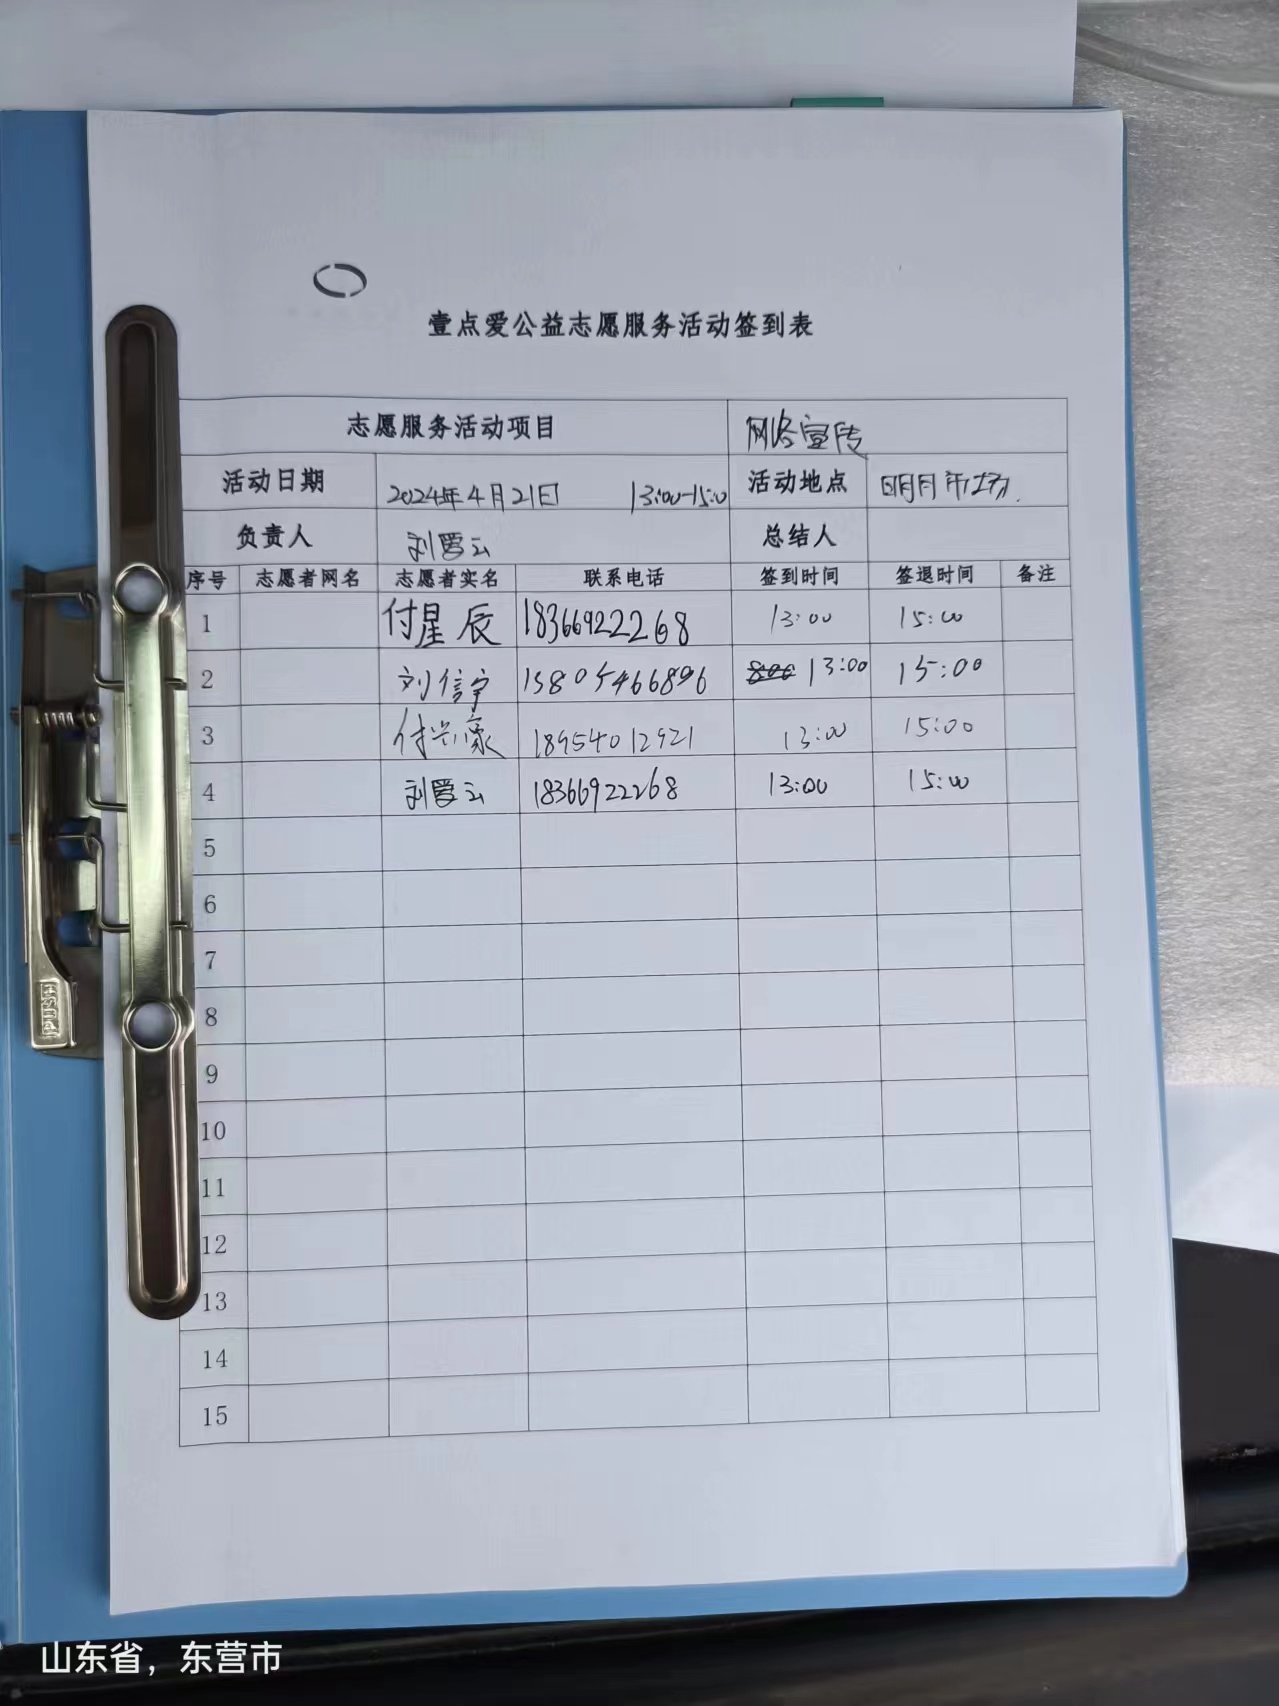 壹点爱公益志愿服务活动签到表
志愿服务活动项目 网络宣传
活动日期 2024年4月21日 13:00-15:0 活动地点 明月市场.
负责人 刘爱云 总结人
序号 志愿者网名 志愿者实名 联系电话 签到时间 签退时间 备注
1 付星辰 18366922268 13:00 15:00
2 刘信宇 15805466896 13:00 15:00
3 付兴豪 18954012921 13:00 15:00
4 刘爱云 18366922268 13:00 15:00
5
6
7
8
9
10
11
12
13
14
15
PUSH
山东省，东营市